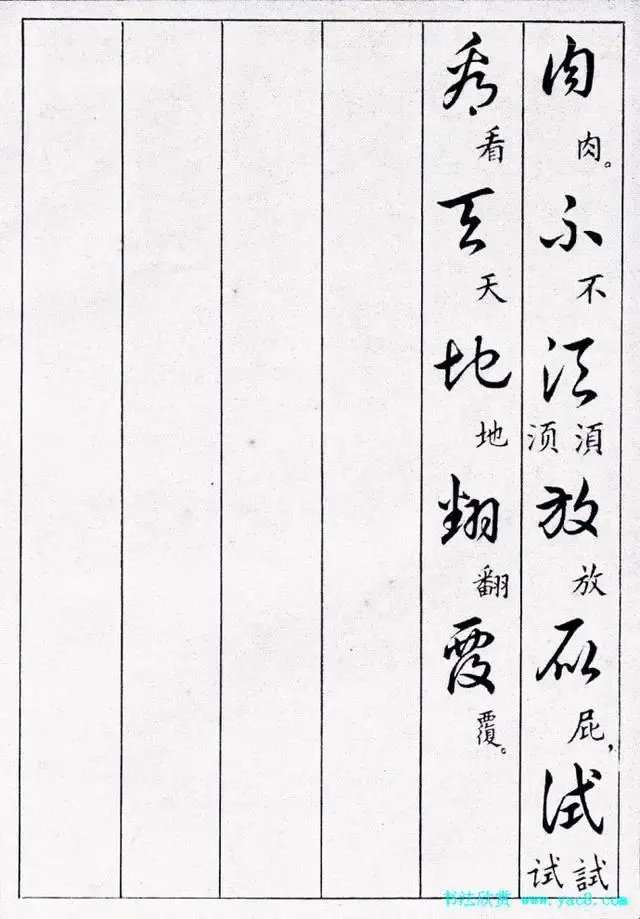 肉肉。不不須须須放放屁屁，試试試
看看天天地地翻翻覆覆。
书法欣赏 www.yac8.com